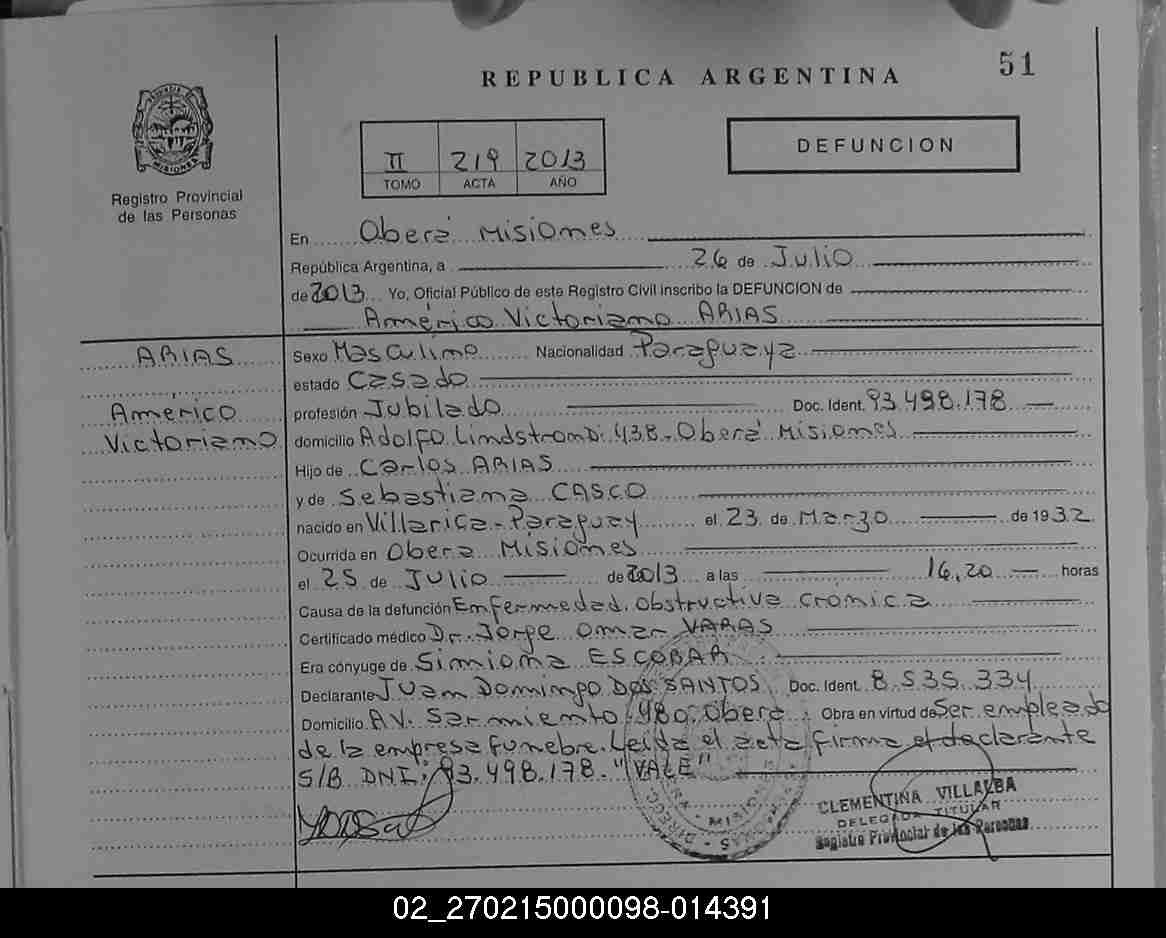 51
REPUBLICA ARGENTINA
II 219 2013
TOMO ACTA AÑO
DEFUNCION
Registro Provincial
de las Personas
En Oberá Misiones
República Argentina, a 26 de Julio
de 2013 Yo, Oficial Público de este Registro Civil inscribo la DEFUNCION de
Américo Victoriano ARIAS
ARIAS
Americo
Victoriano
Sexo Masculino Nacionalidad Paraguaya
estado Casado
profesión Jubilado Doc. Ident. 93.498.178
domicilio Adolfo Lindstrom 438 - Oberá Misiones
Hijo de Carlos ARIAS
y de Sebastiana CASCO
nacido en Villarica - Paraguay el 23 de Marzo de 1932
Ocurrida en Obera Misiones
el 25 de JULIO de 2013 a las 16,20 horas
Causa de la defunción Enfermedad obstructiva crónica
Certificado médico Dr. Jorge Omar VARAS
Era cónyuge de Sinniona ESCOBAR
Declarante Juan Domingo Dos SANTOS Doc. Ident. 8.535.334
Domicilio AV. Sarmiento 980. Obera Obra en virtud de Ser empleado
de la empresa funebre. Leida el acta firma el declarante
S/B DNI: 93.498.178. "VALE"
CLEMENTINA VILLALBA
DELEGADA TITULAR
Registro Provincial de las Personas
02_270215000098-014391